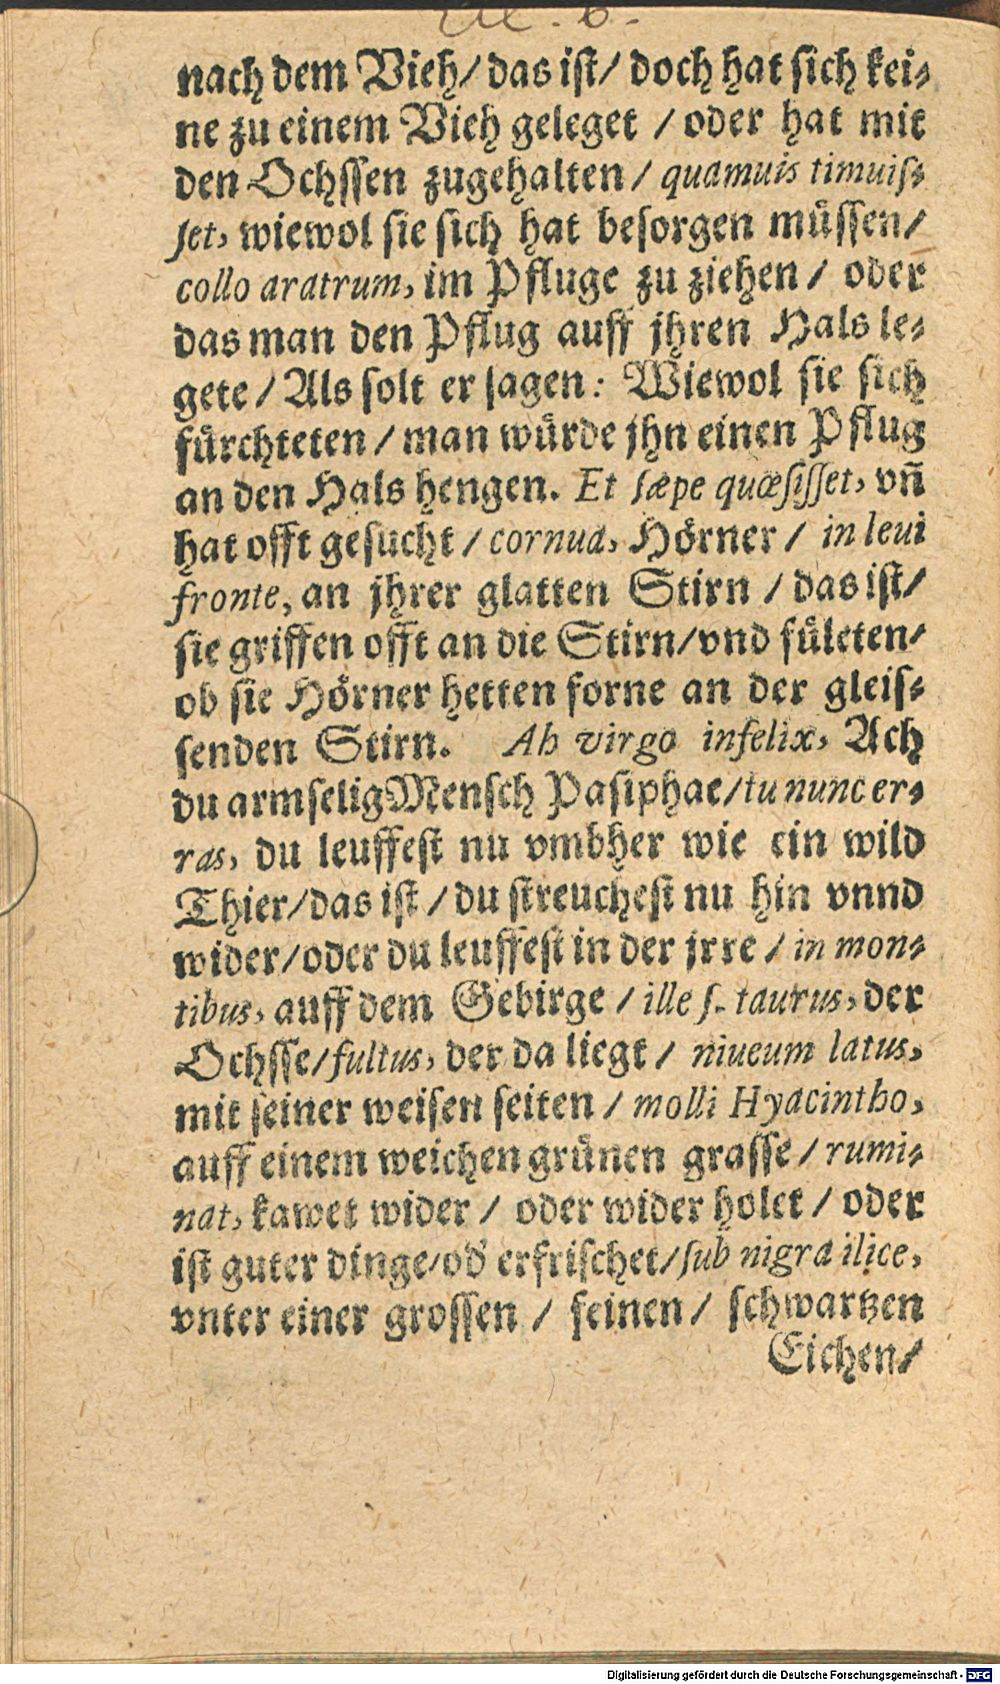 nach dem Vieh/ das ist/ doch hat sich kei⸗
ne zu einem Vieh geleget / oder hat mit
den Ochssen zugehalten/ quamuis timuis⸗
set, wiewol sie sich hat besorgen müssen/
collo aratrum, im Pfluge zu ziehen / oder
das man den Pflug auff jhren Hals le⸗
gete / Als solt er sagen: Wiewol sie sich
fürchteten / man würde jhn einen Pflug
an den Hals hengen. Et sæpe quæsisset, vñ
hat offt gesucht / cornua, Hörner / in leui
fronte, an jhrer glatten Stirn / das ist/
sie griffen offt an die Stirn/vnd fületen/
ob sie Hörner hetten forne an der gleis⸗
senden Stirn. Ah virgo infelix, Ach
du armselig Mensch Pasiphae/tu nunc er⸗
ras, du leuffest nu vmbher wie ein wild
Thier/das ist / du streuchest nu hin vnnd
wider/oder du leuffest in der jrre / in mon⸗
tibus, auff dem Gebirge / ille s. taurus, der
Ochsse/fultus, der da liegt / niueum latus,
mit seiner weisen seiten / molli Hyacintho,
auff einem weichen grünen grasse / rumi⸗
nat, kawet wider / oder wider holet / oder
ist guter dinge/od' erfrischet/sub nigra ilice,
vnter einer grossen / feinen / schwartzen
Eichen/
Digitalisierung gefördert durch die Deutsche Forschungsgemeinschaft - DFG